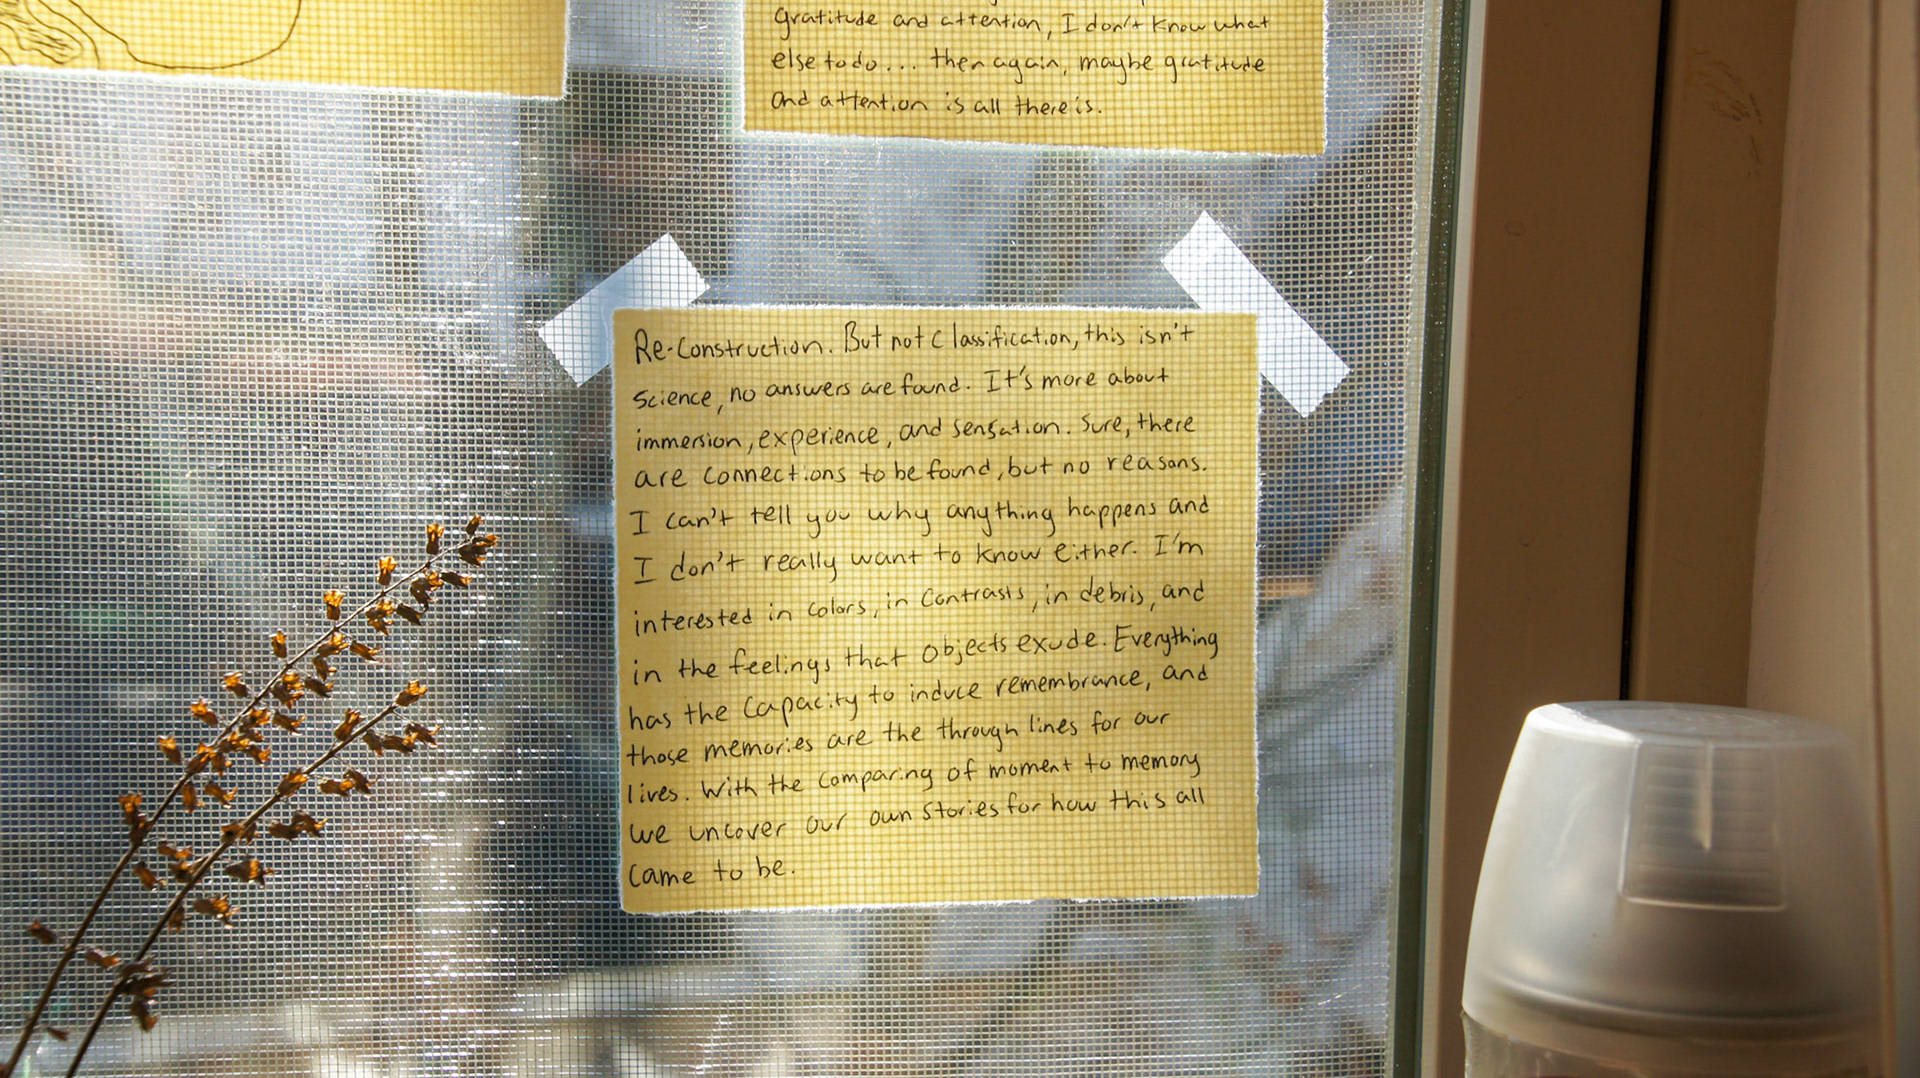 Gratitude and attention, I don't know what
else to do... then again, maybe gratitude
and attention is all there is.
Re-Construction. But not Classification, this isn't
science, no answers are found. It's more about
immersion, experience, and sensation. Sure, there
are connections to be found, but no reasons.
I can't tell you why anything happens and
I don't really want to know either. I'm
interested in colors, in contrasts, in debris, and
in the feelings that objects exude. Everything
has the capacity to induce remembrance, and
those memories are the through lines for our
lives. With the comparing of moment to memory
we uncover our own stories for how this all
came to be.